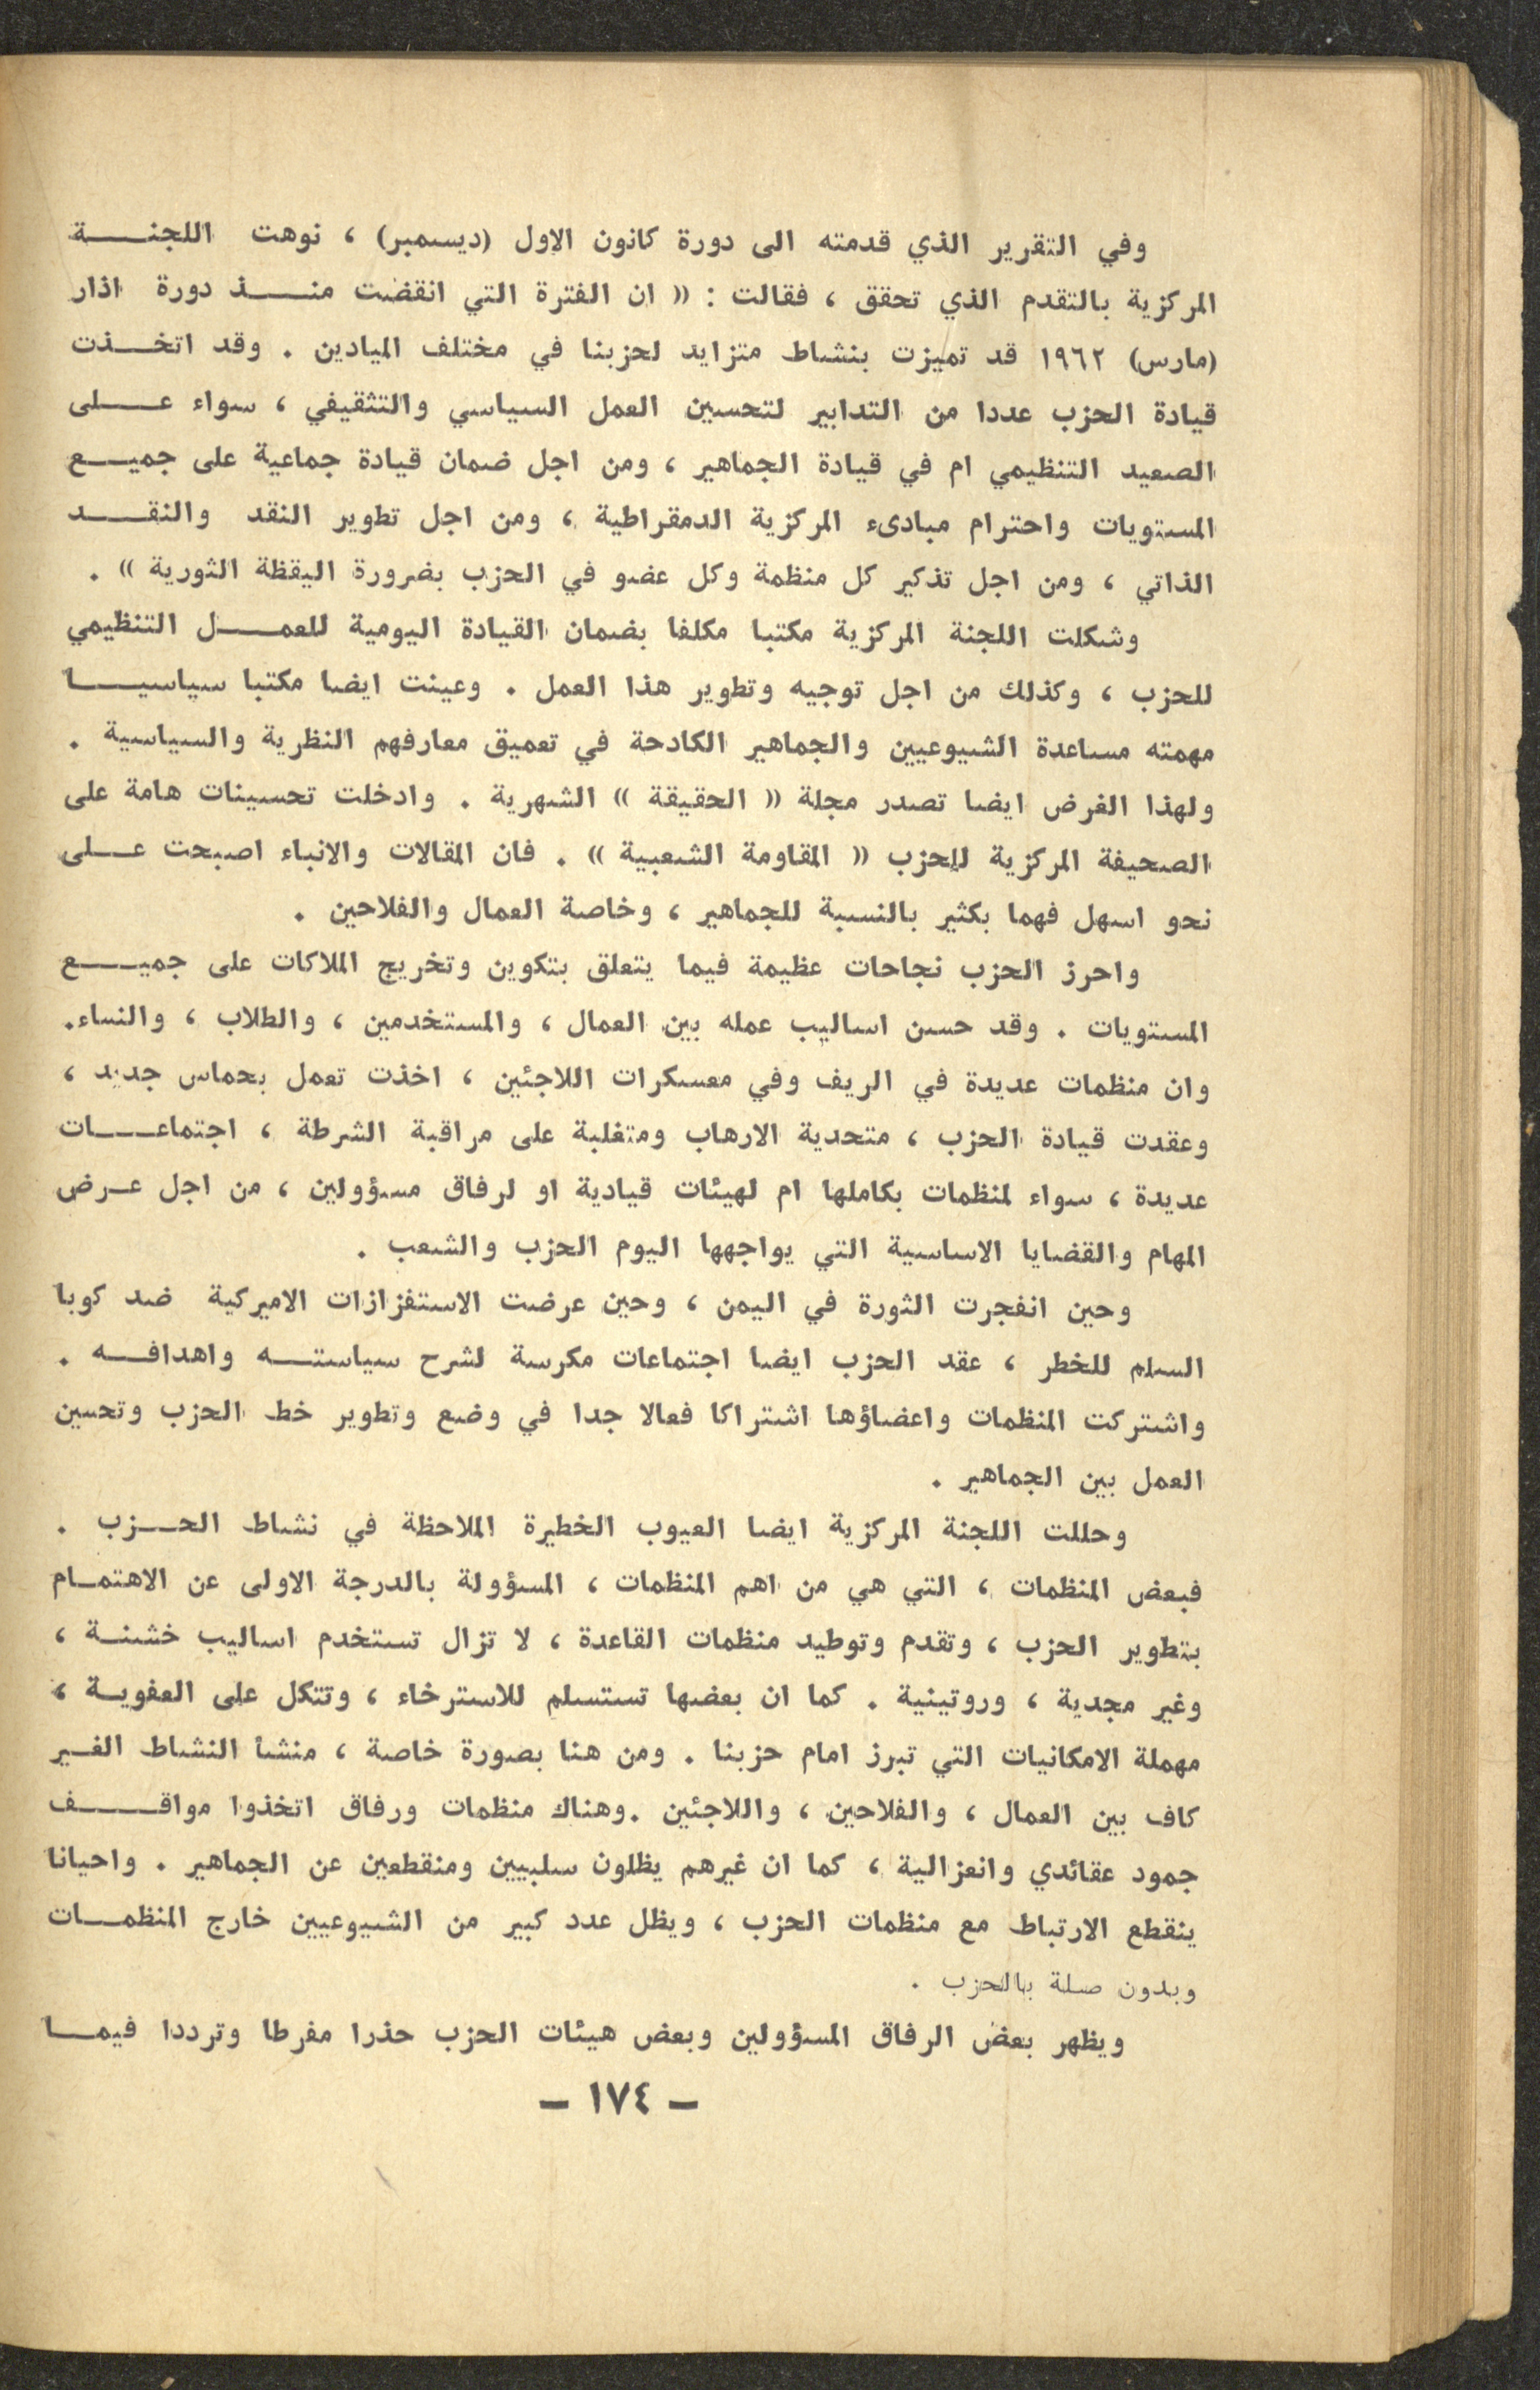 وفي التقرير الذي قدمته الى دورة كانون الاول (ديسمبر) ، نوهت اللجنة
المركزية بالتقدم الذي تحقق ، فقالت : « ان الفترة التي انقضت منذ دورة اذار
(مارس) ١٩٦٢ قد تميزت بنشاط متزايد لحزبنا في مختلف الميادين . وقد اتخذت
قيادة الحزب عددا من التدابير لتحسين العمل السياسي والتثقيفي ، سواء على
الصعيد التنظيمي ام في قيادة الجماهير ، ومن اجل ضمان قيادة جماعية على جميع
المستويات واحترام مبادىء المركزية الدمقراطية ، ومن اجل تطوير النقد والنقد
الذاتي ، ومن اجل تذكير كل منظمة وكل عضو في الحزب بضرورة اليقظة الثورية » .
وشكلت اللجنة المركزية مكتبا مكلفا بضمان القيادة اليومية للعمل التنظيمي
للحزب ، وكذلك من اجل توجيه وتطوير هذا العمل . وعينت ايضا مكتبا سياسيا
مهمته مساعدة الشيوعيين والجماهير الكادحة في تعميق معارفهم النظرية والسياسية .
ولهذا الغرض ايضا تصدر مجلة « الحقيقة » الشهرية . وادخلت تحسينات هامة على
الصحيفة المركزية للحزب « المقاومة الشعبية » . فان المقالات والانباء اصبحت على
نحو اسهل فهما بكثير بالنسبة للجماهير ، وخاصة العمال والفلاحين .
واحرز الحزب نجاحات عظيمة فيما يتعلق بتكوين وتخريج الملاكات على جميع
المستويات . وقد حسن اساليب عمله بين العمال ، والمستخدمين ، والطلاب ، والنساء.
وان منظمات عديدة في الريف وفي معسكرات اللاجئين ، اخذت تعمل بحماس جديد ،
وعقدت قيادة الحزب ، متحدية الارهاب ومتغلبة على مراقبة الشرطة ، اجتماعات
عديدة ، سواء لمنظمات بكاملها ام لهيئات قيادية او لرفاق مسؤولين ، من اجل عرض
المهام والقضايا الاساسية التي يواجهها اليوم الحزب والشعب .
وحين انفجرت الثورة في اليمن ، وحين عرضت الاستفزازات الاميركية ضد كوبا
السلم للخطر ، عقد الحزب ايضا اجتماعات مكرسة لشرح سياسته واهدافه .
واشتركت المنظمات واعضاؤها اشتراكا فعالا جدا في وضع وتطوير خط الحزب وتحسين
العمل بين الجماهير .
وحللت اللجنة المركزية ايضا العيوب الخطيرة الملاحظة في نشاط الحزب .
فبعض المنظمات ، التي هي من اهم المنظمات ، المسؤولة بالدرجة الاولى عن الاهتمام
بتطوير الحزب ، وتقدم وتوطيد منظمات القاعدة ، لا تزال تستخدم اساليب خشنة ،
وغير مجدية ، وروتينية . كما ان بعضها تستسلم للاسترخاء ، وتتكل على العفوية ،
مهملة الامكانيات التي تبرز امام حزبنا . ومن هنا بصورة خاصة ، منشأ النشاط الغير
كاف بين العمال ، والفلاحين ، واللاجئين .وهناك منظمات ورفاق اتخذوا مواقف
جمود عقائدي وانعزالية ، كما ان غيرهم يظلون سلبيين ومنقطعين عن الجماهير . واحيانا
ينقطع الارتباط مع منظمات الحزب ، ويظل عدد كبير من الشيوعيين خارج المنظمات
وبدون صلة بالحزب .
ويظهر بعض الرفاق المسؤولين وبعض هيئات الحزب حذرا مفرطا وترددا فيما
– ١٧٤ –